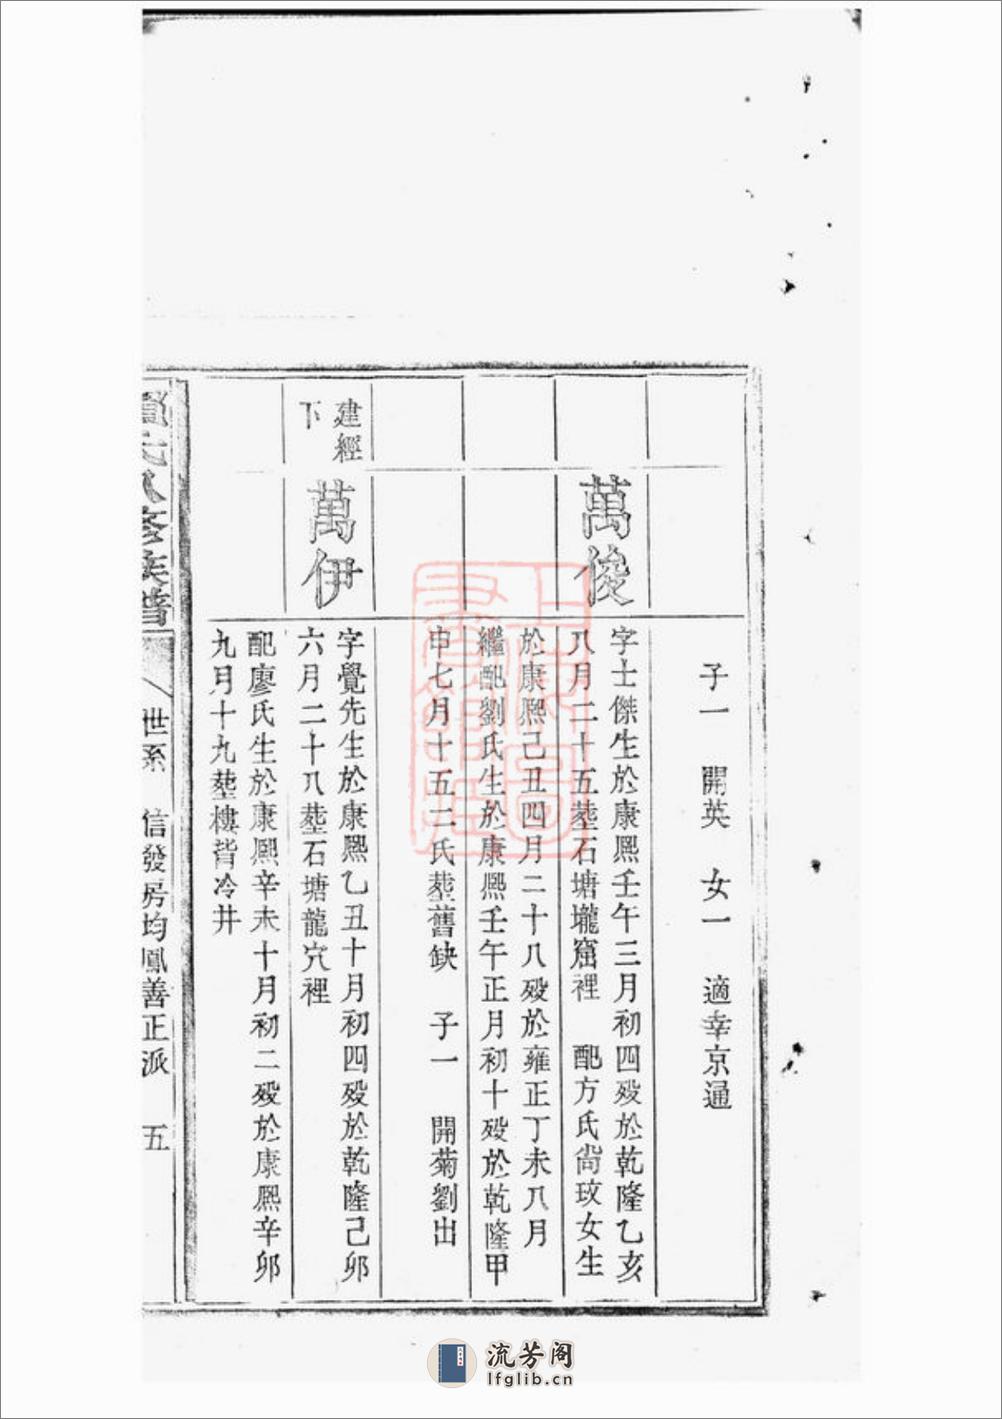 子一 開英 女一 適幸京通
萬俊
字士傑生於康熙壬午三月初四歿於乾隆乙亥
八月二十五塟石塘壠窟裡 配方氏尚玟女生
於康熙己丑四月二十八歿於雍正丁未八月
繼配劉氏生於康熙壬午正月初十歿於乾隆甲
申七月十五二氏塟舊缺 子一 開菊劉出
建經
下
萬伊
字覺先生於康熙乙丑十月初四歿於乾隆己卯
六月二十八塟石塘龍穴裡
配廖氏生於康熙辛未十月初二歿於康熙辛卯
九月十九塟樓背冷井
氏八修族譜
世系 信發房均鳳善正派 五
流芳阁
lfglib.cn